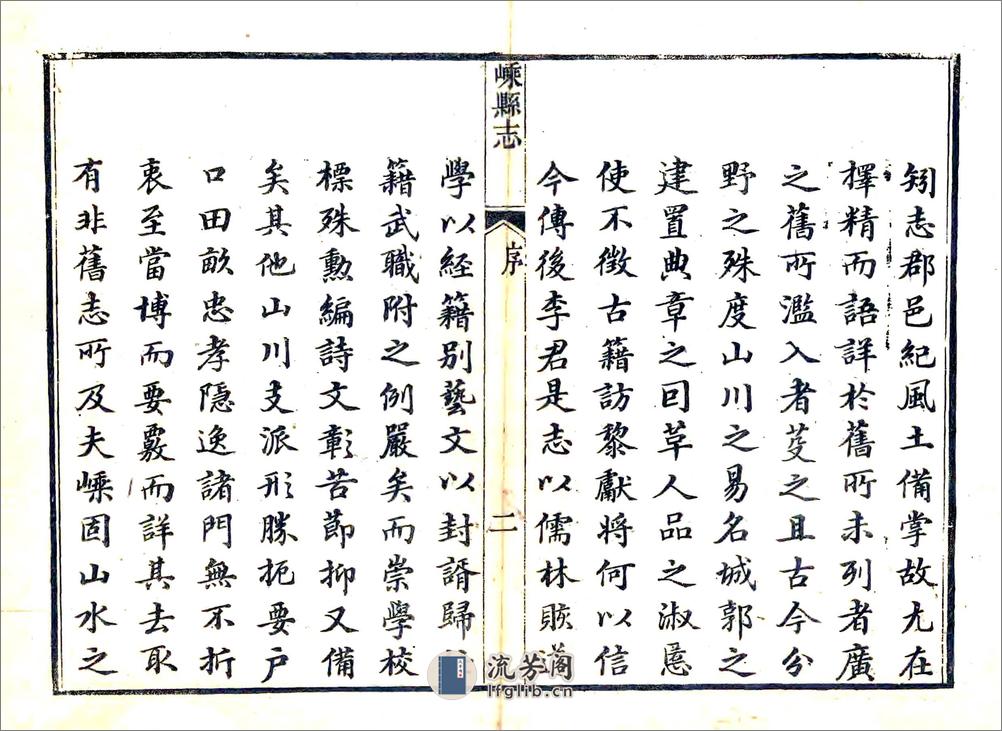 矧志郡邑紀風土備掌故尤在
擇精而語詳於舊所未列者廣
之舊所濫入者芟之且古今分
野之殊度山川之易名城郭之
建置典章之回革人品之淑慝
使不徵古籍訪黎獻將何以信
今傳後李君是志以儒林賅道
嵊縣志
序
二
學以經籍別藝文以封諝歸
籍武職附之例嚴矣而崇學校
標殊勳編詩文彰苦節抑又備
矣其他山川支派形勝扼要戶
口田畝忠孝隱逸諸門無不折
衷至當博而要覈而詳其去取
有非舊志所及夫嵊固山水之
流芳阁
lfglib.cn